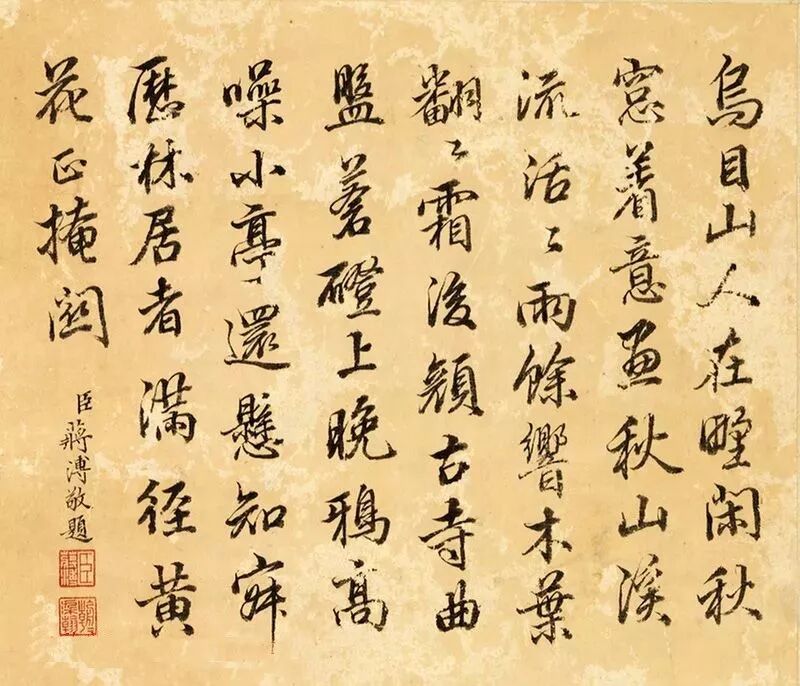 烏目山人在野閑秋
窓着意畫秋山溪
流活〻雨餘響木葉
翻〻霜後顏古寺曲
盤蒼磴上晚鴉高
噪小亭還懸知寂
歷林居者滿徑黃
花正掩關
臣蔣溥敬題